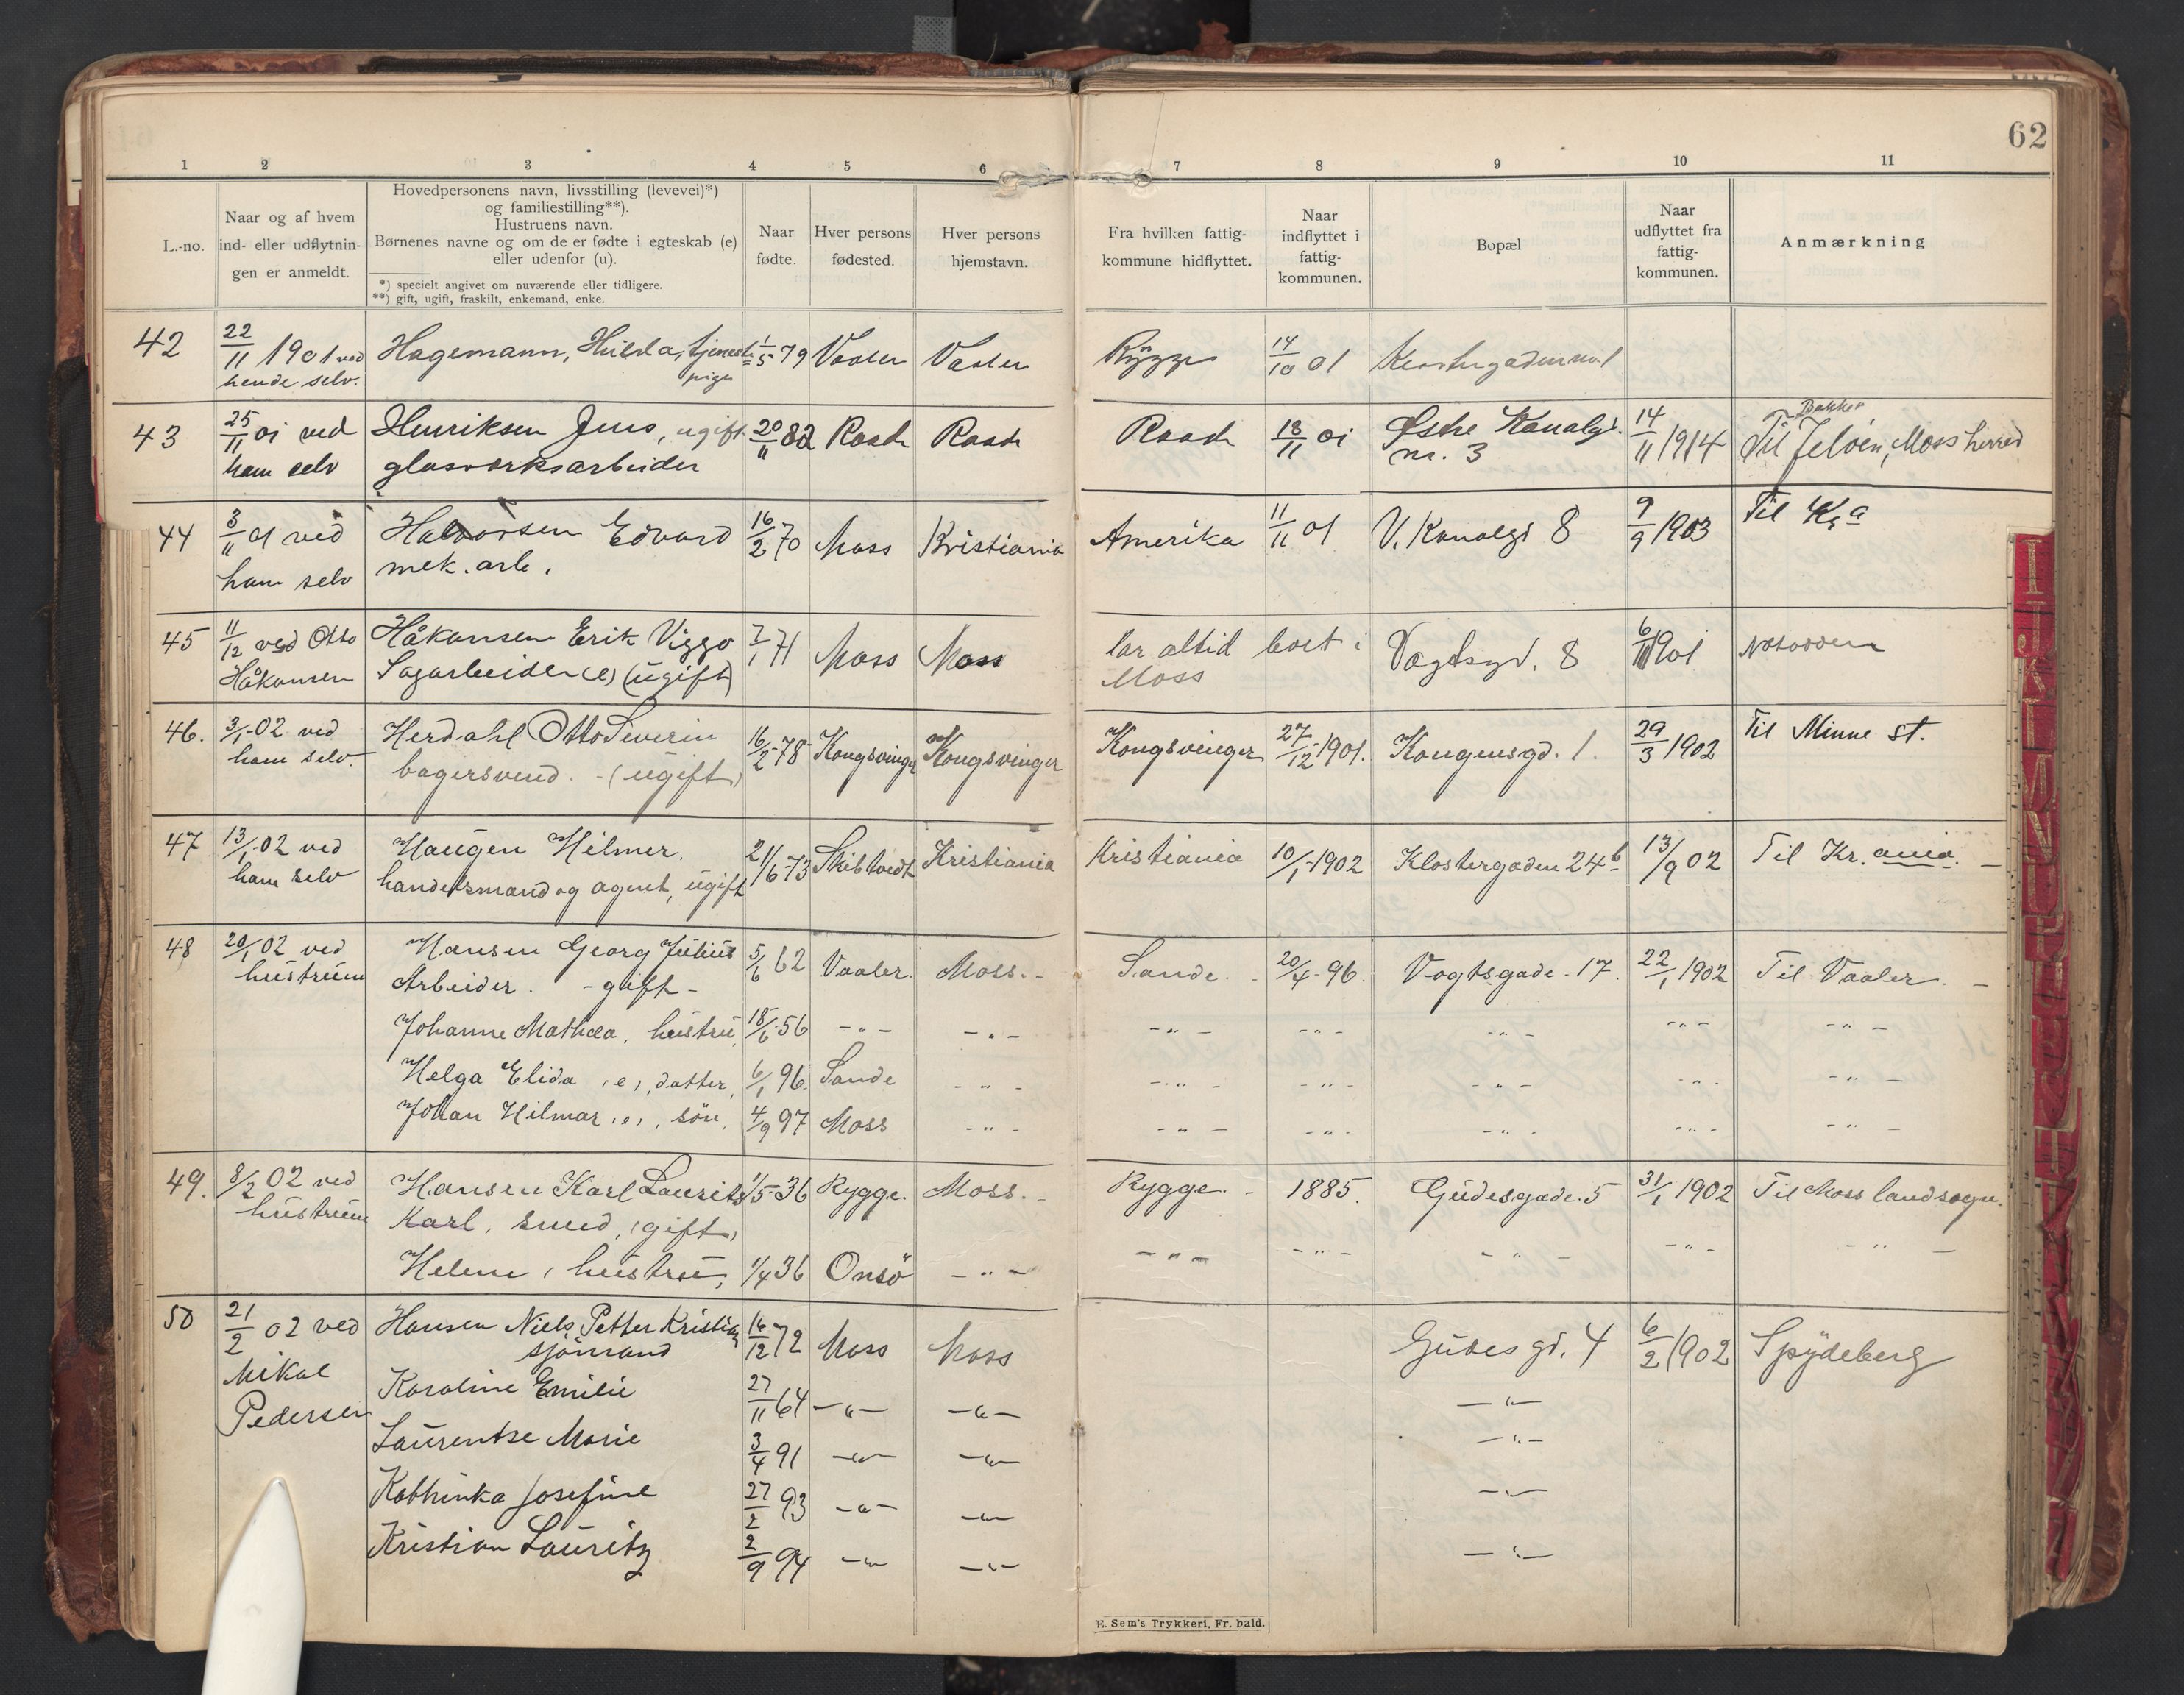 62
1 2 3 4 5 6 7 8 9 10 11
L.-no.
Naar og af hvem
ind- eller udflytnin-
gen er anmeldt.
Hovedpersonens navn, livsstilling (levevei)*)
og familiestilling**).
Hustruens navn.
Børnenes navne og om de er fødte i egteskab (e)
eller udenfor (u).
*) specielt angivet om nuværende eller tidligere.
**) gift, ugift, fraskilt, enkemand, enke.
Naar
fødte.
Hver persons
fødested.
Hver persons
hjemstavn.
Fra hvilken fattig-
kommune hidflyttet.
Naar
indflyttet i
fattig-
kommunen.
Bopæl
Naar
udflyttet fra
fattig-
kommunen.
Anmærkning
42 22/11 1901 ved Hagemann, Hilda, tjeneste- 1/5 79 Vaaler Vaaler Rygge 14/10 01
hende selv. pige
43 25/11 01 ved Henriksen Jens, ugift 20/11 82 Raade Raade Raade 18/11 01 Østre Kanalgd. 14/11 1914 Til Jeløen, Moss herred
ham selv glasværksarbeider nr. 3
44 3/11 01 ved Halvorsen Edvard 16/2 70 Moss Kristiania Amerika 11/11 01 V. Kanalgd 8 9/9 1903 Til Kr.a
ham selv mek. arb.
45 11/12 ved Otto Håkonsen Erik Viggo 7/1 71 Moss Moss har altid boet i Vogtsgd. 8 1901 Notodden
Håkonsen Sagarbeider (e) (ugift) Moss
46. 3/1-02 ved Herdahl Otto Severin 16/2-78 Kongsvinger Kongsvinger Kongsvinger 27/12-1901. Kongensgd. 1. 29/3 1902 Til Minne st.
ham selv. bagersvend. - (ugift)
47 13/1-02 ved Haugen Hilmer. 21/6-73 Skibtvedt Kristiania Kristiania 10/1-1902 Klostergaden 24b 13/9 02 Til Kr.ania. -
ham selv handelsmand og agent, ugift
48 20/1 02 ved Hansen Georg Julius 5/6 62 Vaaler. Moss. - Sande. - 20/4-96. Vogtsgade - 17. 22/1 1902 Til Vaaler. -
hustruen Arbeider. - gift -
Johanne Mathilda, hustru, 18/6 56 - " - - " - - " - - " - - " - - " - - " -
Helga Elida (e), datter, 6/1 96. Sande - " - - " - - " - - " - - " - - " -
Johan Hilmar (e), søn, 4/9 97 Moss - " - - " - - " - - " - - " - - " -
49. 8/2 02 ved Hansen Karl Lauritz 1/5-36 Rygge. Moss. - Rygge. - 1885. Gudesgade. 5 31/1 1902 Til Moss landsogn.
hustruen Karl, smed, (gift)
Helene, hustru, 1/4 36 Onsö - " - - " - - " - - " - - " - - " -
50 21/2 02 ved Hansen Niels Petter Kristian 16/12 72 Moss Moss Gudes gd. 4 6/2 1902 Spydeberg
sjömand
Mikal Karoline Emilie 27/11 64 - " - - " - - " -
Pedersen Laurentse Marie 3/4 91 - " - - " - - " -
Kathinka Josefine 27/2 93 - " - - " - - " -
Kristian Lauritz 2/9 94 - " - - " - - " -
E. Sem's Trykkeri, Fr. hald.